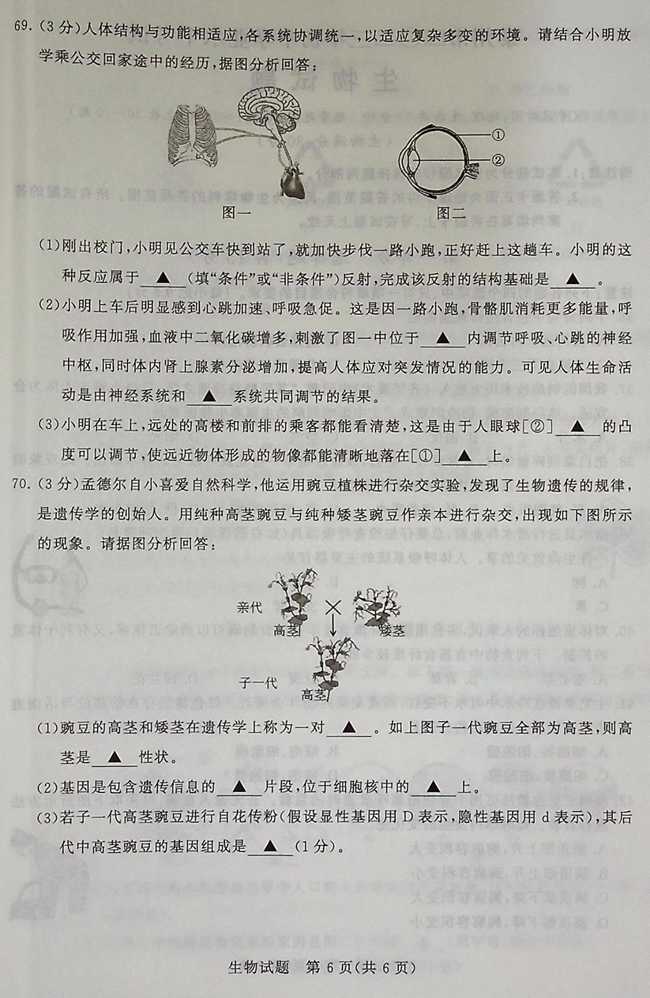 69.(3分)人体结构与功能相适应,各系统协调统一,以适应复杂多变的环境。请结合小明放
学乘公交回家途中的经历,据图分析回答:
①
②
图一
图二
(1)刚出校门,小明见公交车快到站了,就加快步伐一路小跑,正好赶上这趟车。小明的这
种反应属于 ▲ (填“条件”或“非条件”)反射,完成该反射的结构基础是 ▲ 。
(2)小明上车后明显感到心跳加速、呼吸急促。这是因一路小跑,骨骼肌消耗更多能量,呼
吸作用加强,血液中二氧化碳增多,刺激了图一中位于 ▲ 内调节呼吸、心跳的神经
中枢,同时体内肾上腺素分泌增加,提高人体应对突发情况的能力。可见人体生命活
动是由神经系统和 ▲ 系统共同调节的结果。
(3)小明在车上,远处的高楼和前排的乘客都能看清楚,这是由于人眼球[②] ▲ 的凸
度可以调节,使远近物体形成的物像都能清晰地落在[①] ▲ 上。
70.(3分)孟德尔自小喜爱自然科学,他运用豌豆植株进行杂交实验,发现了生物遗传的规律,
是遗传学的创始人。用纯种高茎豌豆与纯种矮茎豌豆作亲本进行杂交,出现如下图所示
的现象。请据图分析回答:
亲代
×
高茎
矮茎
子一代
高茎
(1)豌豆的高茎和矮茎在遗传学上称为一对 ▲ 。如上图子一代豌豆全部为高茎,则高
茎是 ▲ 性状。
(2)基因是包含遗传信息的 ▲ 片段,位于细胞核中的 ▲ 上。
(3)若子一代高茎豌豆进行自花传粉(假设显性基因用D表示,隐性基因用d表示),其后
代中高茎豌豆的基因组成是 ▲ (1分)。
生物试题 第6页(共6页)